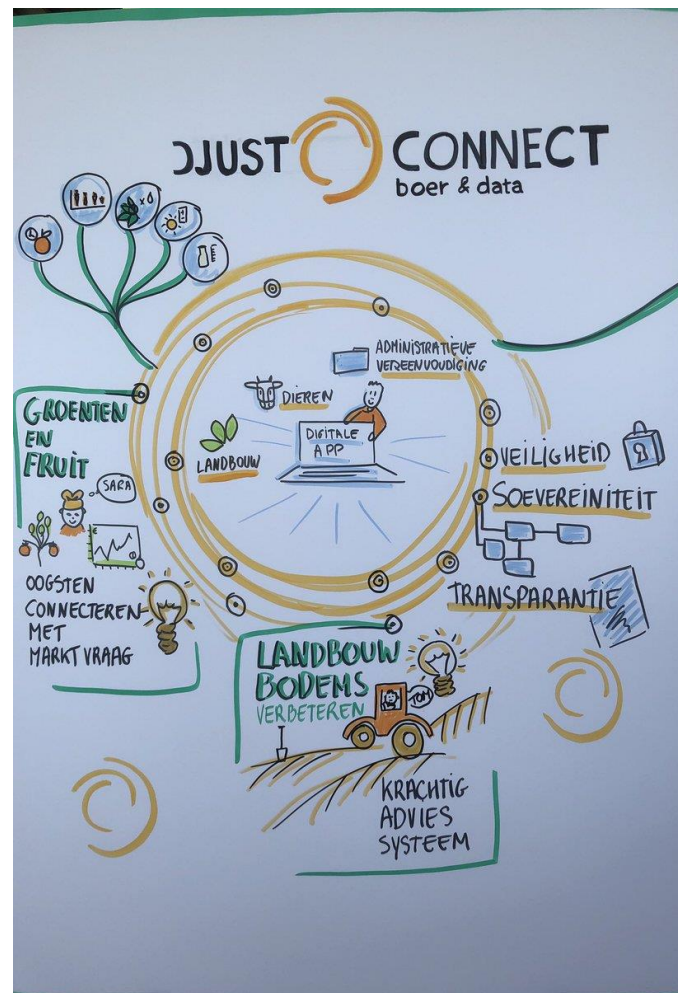 DJUST CONNECT
boer & data
ADMINISTRATIEVE
VEREENVOUDIGING
DIEREN
DIGITALE
APP
LANDBOUW
GROENTEN
EN
FRUIT
SARA
€
OOGSTEN
CONNECTEREN
MET
MARKTVRAAG
VEILIGHEID
SOEVEREINITEIT
TRANSPARANTIE
LANDBOUW
BODEMS
VERBETEREN
TOM
KRACHTIG
ADVIES
SYSTEEM